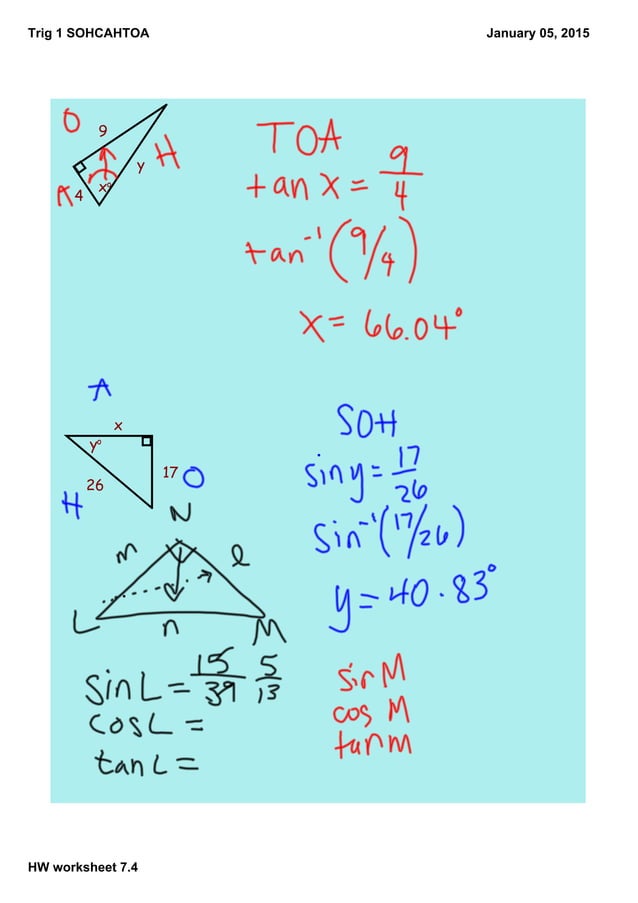 Trig 1 SOHCAHTOA
January 05, 2015
O
9
H
y
A 4
x°
TOA
tan x = 9/4
tan⁻¹(9/4)
x = 66.04°
A
x
y°
17 O
26
H
SOH
sin y = 17/26
sin⁻¹(17/26)
y = 40.83°
N
m
l
L
n
M
sin L = 15/39 5/13
cos L =
tan L =
sin M
cos M
tan M
HW worksheet 7.4